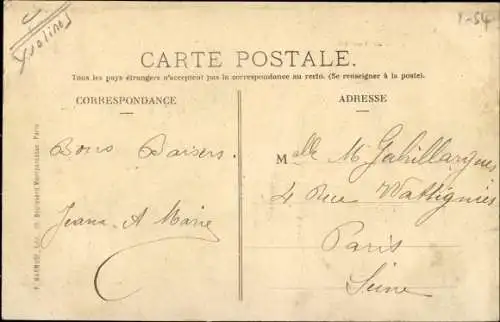 Yvelines
1-54
CARTE POSTALE.
Tous les pays étrangers n'acceptent pas la correspondance au recto. (Se renseigner à la poste).
CORRESPONDANCE
ADRESSE
Bons Baisers.
Jeana - A Marie
Melle M Gahillargues
4 Rue Wattignies
Paris
Seine
Boulevard Montparnasse, Paris